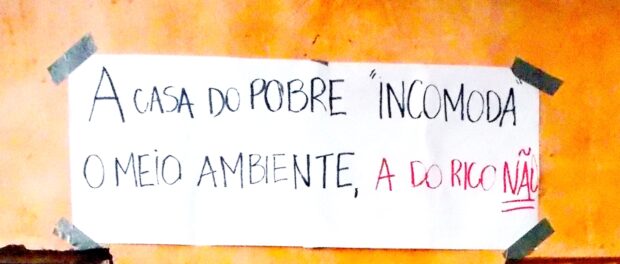 A CASA DO POBRE "INCOMODA"
O MEIO AMBIENTE, A DO RICO NÃO